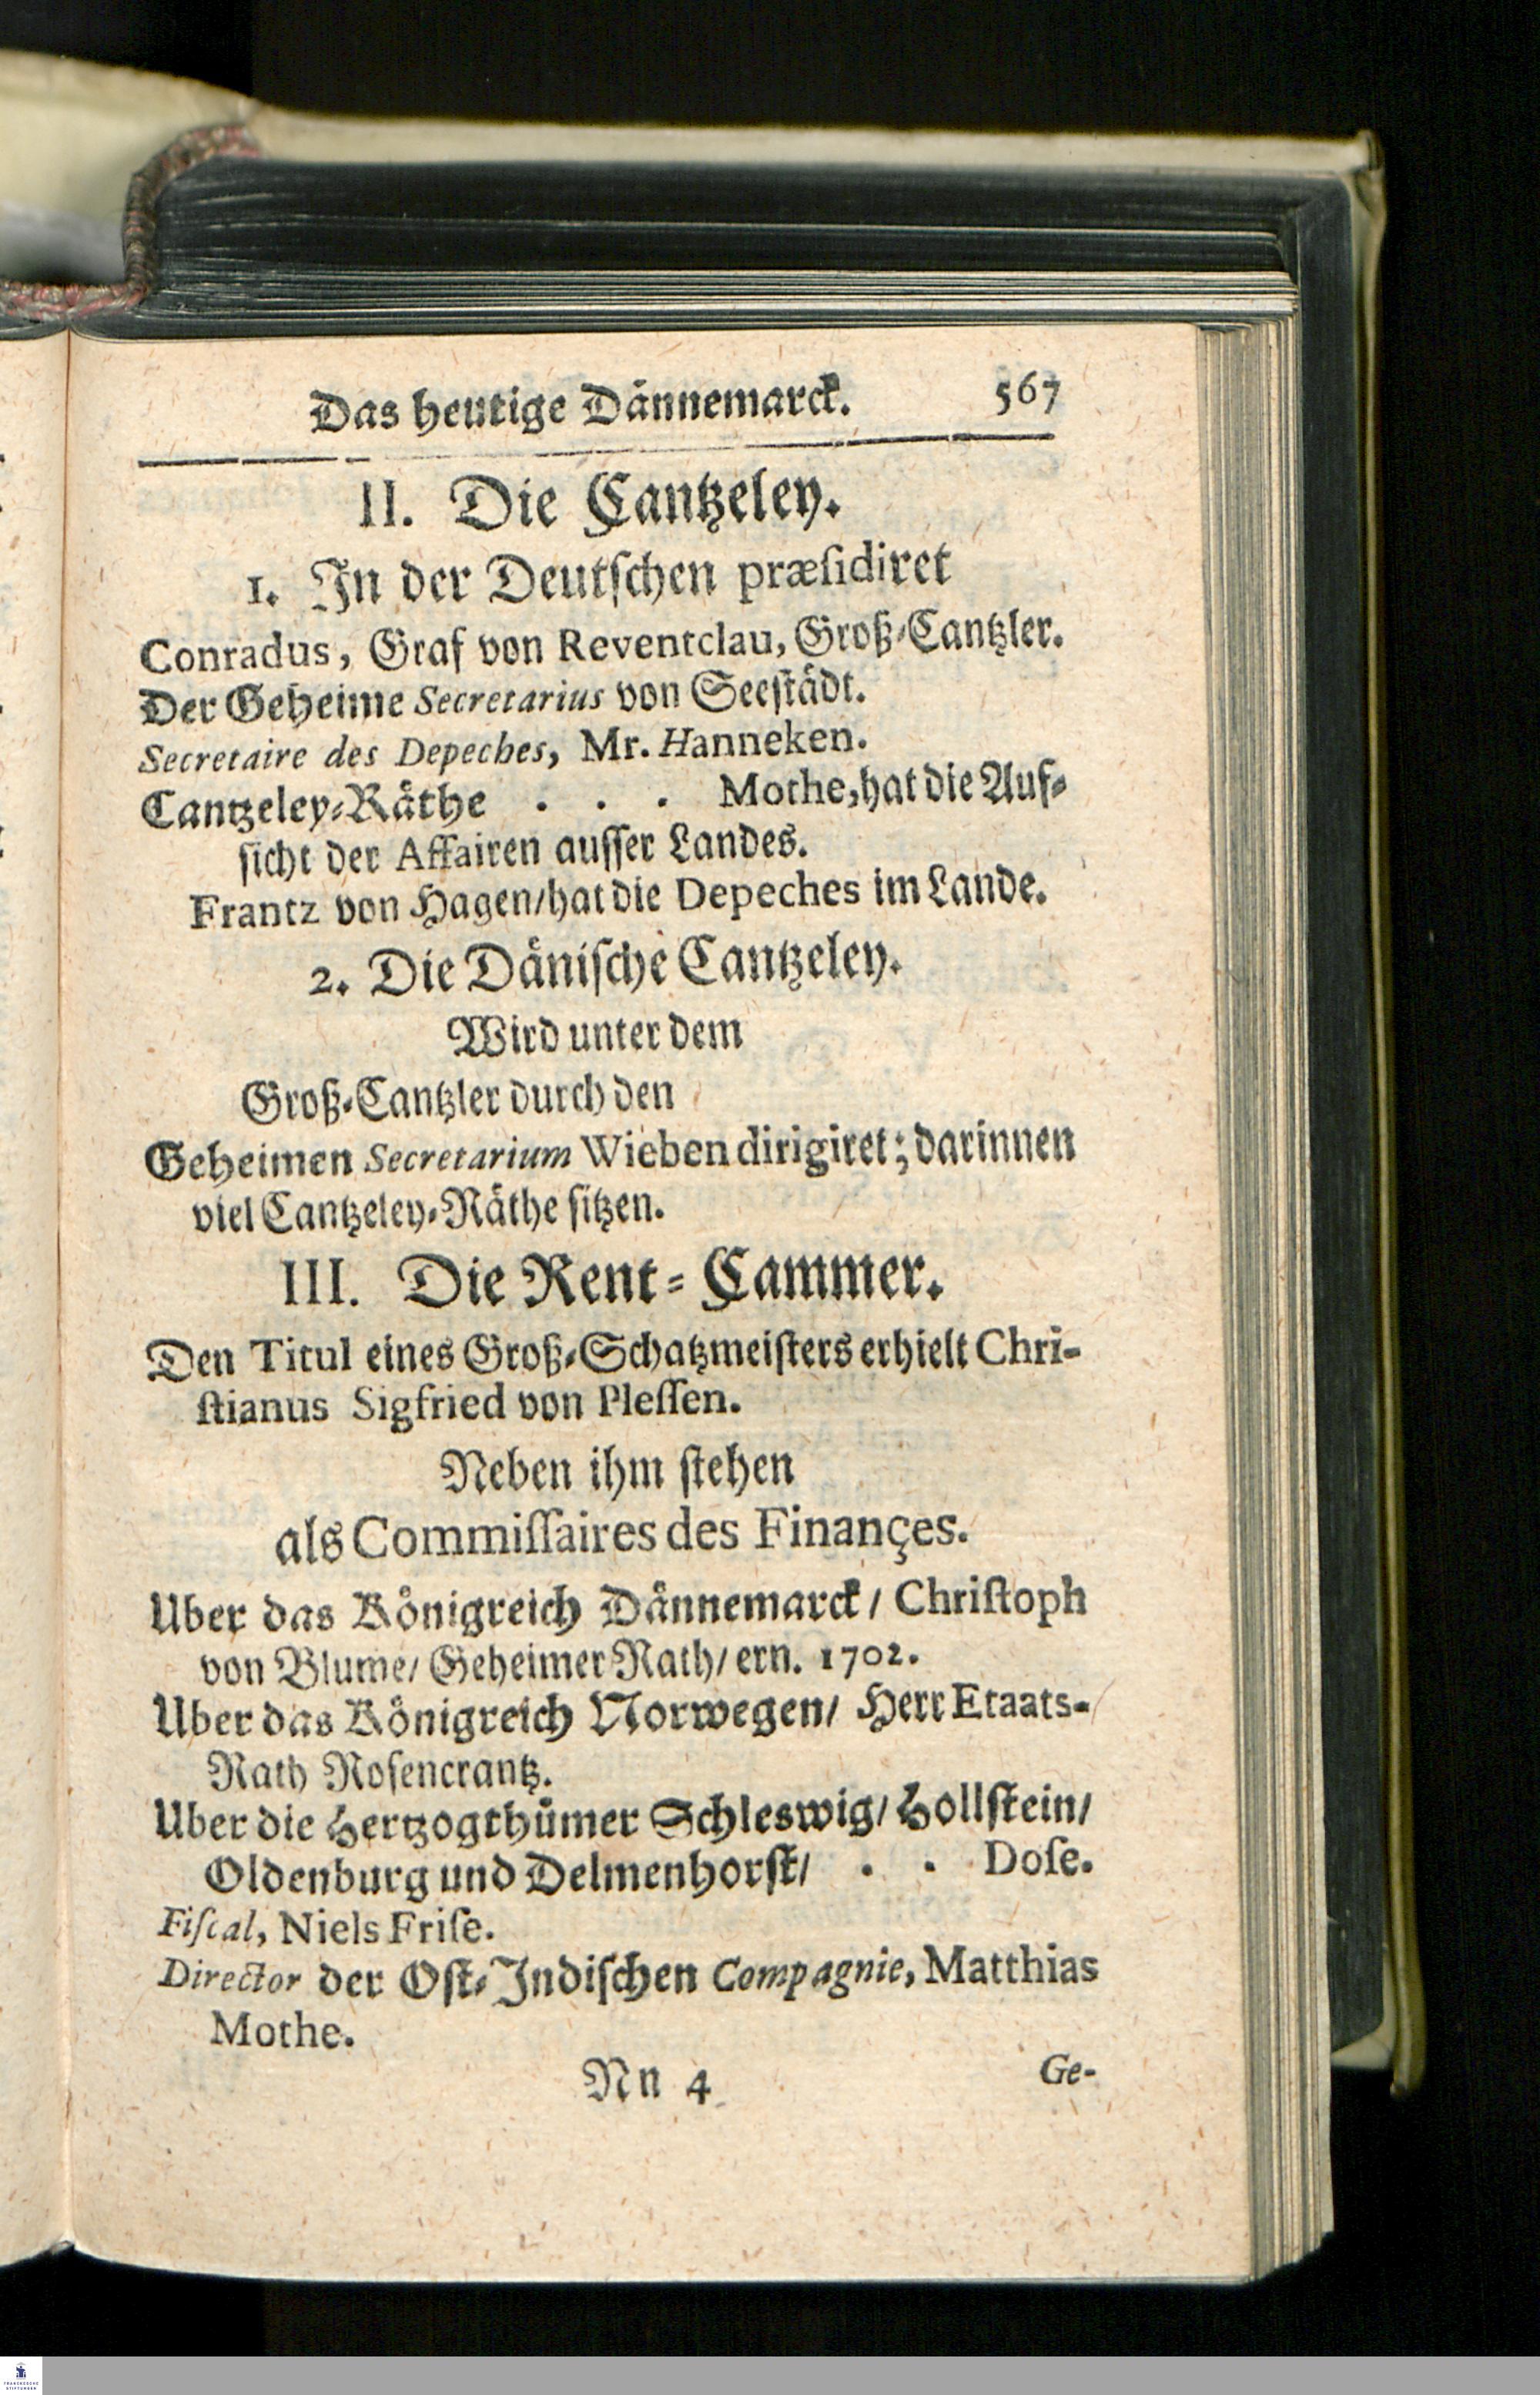 Das heutige Dännemarck. 567
II. Die Cantzeley.
1. In der Deutſchen præſidiret
Conradus, Graf von Reventclau, Groß-Cantzler.
Der Geheime Secretarius von Seeſtädt.
Secretaire des Depeches, Mr. Hanneken.
Cantzeley-Räthe . . . Mothe, hat die Auf-
ſicht der Affairen auſſer Landes.
Frantz von Hagen/hat die Depeches im Lande.
2. Die Däniſche Cantzeley.
Wird unter dem
Groß-Cantzler durch den
Geheimen Secretarium Wieben dirigiret; darinnen
viel Cantzeley-Räthe ſitzen.
III. Die Rent-Cammer.
Den Titul eines Groß-Schatzmeiſters erhielt Chri-
ſtianus Sigfried von Pleſſen.
Neben ihm ſtehen
als Commiſſaires des Finançes.
Uber das Königreich Dännemarck/ Chriſtoph
von Blume/ Geheimer Rath/ ern. 1702.
Uber das Königreich Norwegen/ Herr Etaats-
Rath Roſencrantz.
Uber die Hertzogthümer Schleswig/ Hollſtein/
Oldenburg und Delmenhorſt/ . . Doſe.
Fiſcal, Niels Friſe.
Director der Oſt-Indiſchen Compagnie, Matthias
Mothe.
Nn 4 Ge-
FRANCKESCHE
STIFTUNGEN